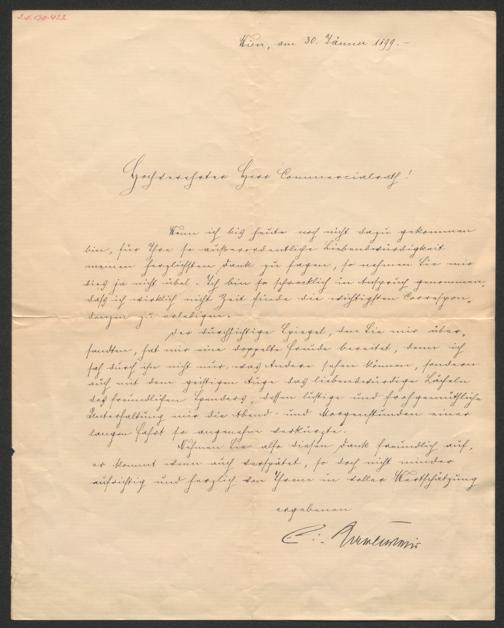 Wien, am 30. Jänner 1899.–
Hochverehrter Herr Commercialrath!
Wenn ich bis heute noch nicht dazu gekommen
bin, für Ihre so außerordentliche Liebenswürdigkeit
meinen herzlichsten Dank zu sagen, so nehmen Sie mir
dies ja nicht übel. Ich bin so schrecklich in Anspruch genommen,
daß ich wirklich nicht Zeit finde die wichtigsten Correspon-
denzen zu erledigen.
Der durchsichtige Spiegel, den Sie mir über-
sandten, hat mir eine doppelte Freude bereitet, denn ich
sah durch ihn nicht nur, was Andere sehen können, sondern
auch mit dem geistigen Auge das liebenswürdige Lächeln
des freundlichen Spenders, dessen lustige und frohgemüthliche
Unterhaltung mir die Abend- und Morgenstunden einer
langen Fahrt so angenehm verkürzte.
Nehmen Sie also diesen Dank freundlich auf,
er kommt wenn auch verspätet, so doch nicht minder
aufrichtig und herzlich von Ihrem in voller Wertschätzung
ergebenen